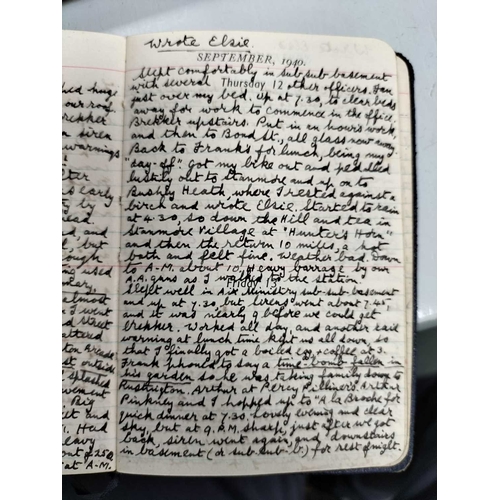 Wrote Elsie.
SEPTEMBER, 1940.
Slept comfortably in sub sub basement
with several Thursday 12 other officers. Fan
just over my bed. Up at 7.30, to clear beds
away for work to commence in the office.
Brekker upstairs. Put in an hour's work,
and then to Bond St., all glass now away.
Back to Frank's for lunch, being my
"day-off" got my bike out and pedalled
lustily out to Stanmore and up on to
Bushey Heath, where I rested against a
birch and wrote Elsie. Started to rain
at 4.30, so down the Hill and tea in
Stanmore Village at "Hunter's Horn"
and then the return 10 miles, a hot
bath and felt fine. Weather bad. Down
to A-M. about 10, Heavy barrage by our
A.A. guns as I walked to the station.
Friday 13
Slept well in Air Ministry sub-sub-basement
and up at 7.30, but sirens went about 7.45,
and it was nearly 9 before we could get
brekker. Worked all day, and another raid
warning at lunch time kept us all down, so
that I finally got a boiled egg + coffee at 3.
Frank phoned to say a time-bomb fallen in
his garden so he was taking family down to
Rustington. Arthur at Percy Pilliner's. Arthur
Pinkney and I hopped up to "A la Broche for
quick dinner at 7.30. Lovely evening and clear
sky, but at 9 P.M. sharp, just after we got
back, siren went again, and downstairs
in basement (or sub-sub-b.) for rest of night.